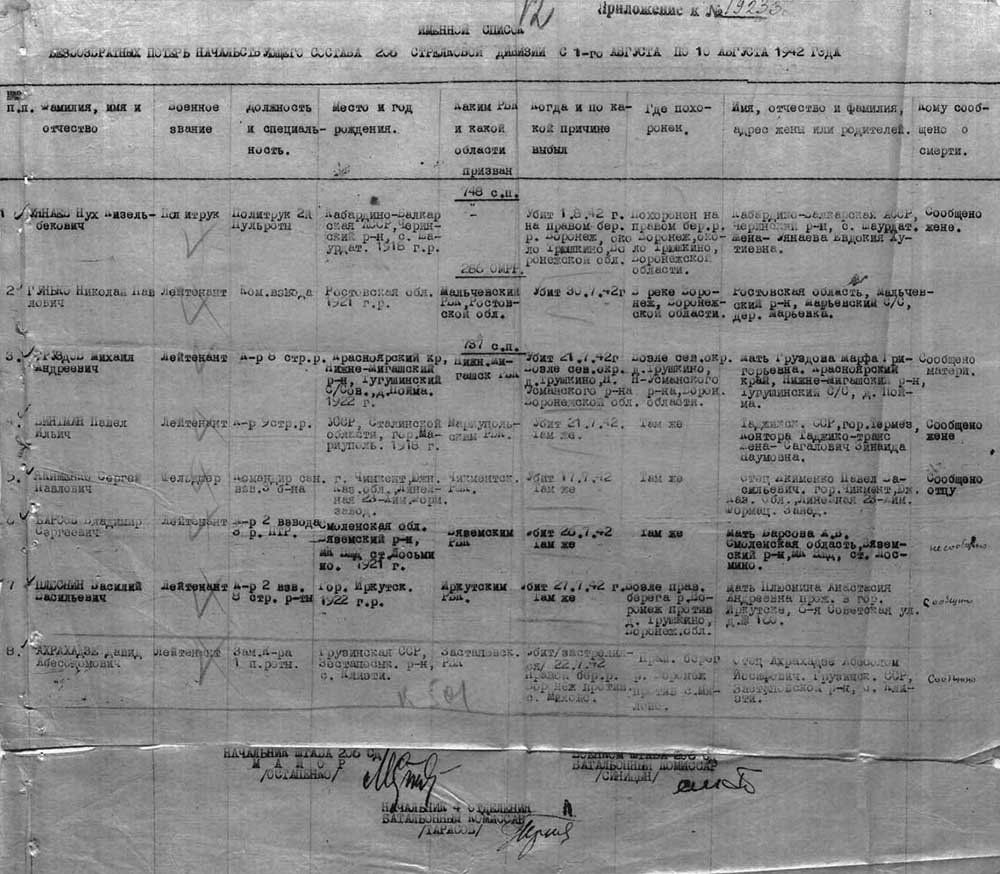 12
Приложение к № 19233.
ИМЕННОЙ СПИСОК
БЕЗВОЗВРАТНЫХ ПОТЕРЬ НАЧАЛЬСТВУЮЩЕГО СОСТАВА 206 СТРЕЛКОВОЙ ДИВИЗИИ С 1-го АВГУСТА ПО 10 АВГУСТА 1942 ГОДА
п.п. Фамилия, имя и отчество
Военное звание
Должность и специаль-ность.
Место и год рождения.
Каким РВК и какой области призван
Когда и по ка-кой причине выбыл
Где похо-ронен.
Имя, отчество и фамилия, адрес жены или родителей.
Кому сооб-щено о смерти.
748 с.п.
1 Нух Кизель-бекович
Политрук
Политрук 2й Пульроты
Кабардино-Балкар ская АССР, Черин-ский р-н, с. урдат. 1918 г.р.
Убит 1.8.42 г. на правом бер. р. Воронеж, око ло Трушкино, Во ронежской обл.
Похоронен на правом бер.р. Воронеж, око-ло Трушкино, Воронежской области.
Кабардино-Балкарская АССР, Черинский р-н, с. Шаурдат. жена- Унаева Евдокия Ху-тиевна.
Сообщено жене.
2 ГУНЬКО Николай Пав лович
Лейтенант
Ком.взвода
Ростовская обл. 1921 г.р.
Мальчевский РВК, Ростов-ской обл.
Убит 30.7.42г
В реке Воро-неж, Воронеж-ской области.
Ростовская область, Мальчев-ский р-н, Марьевский С/С, дер. Марьевка.
737 с.п.
3. ГРУЗДОВ Михаил Андреевич
Лейтенант
К-р 8 стр.р.
Красноярский кр, Нижне-Мигашский р-н, Тугушинский С/Сов., д.Пойма. 1922 г.
Нижн.Ми-гашск РВК
Убит 21.7.42г Возле сев.окр. д.Трушкино, Н. Усманского р-на Воронежской обл.
Возле сев.окр. д.Трушкино, Н-Усманского р-на, Ворон. области.
Мать Груздова Марфа Гри-горьевна. Красноярский край, Нижне-Мигашский р-н, Тугушинский С/С, д. Пой-ма.
Сообщено матери.
4. Павел Ильич
Лейтенант
К-р 9стр.р.
УССР, Сталинской области, гор.Ма-риуполь. 1918 г.
Мариуполь-ским РВК.
Убит 21.7.42. Там же.
Там же
Таджикск. ССР, гор.Термез, Контора Таджико-транс жена- Сагалович Зинаида Наумовна.
Сообщено жене
5. ЯКИМЕНКО Сергей Павлович
Фельдшер
Командир сан. взв.3 б-на
г. Чимкент, Южн. Каз.обл., Линей-ная 23-Хим. завод.
Чикментск. РВК.
Убит 17.7.42 Там же
Там же
Отец Якименко Павел Ва-сильевич. гор.Чикмент, Юж. Каз. обл., Линейная 23-Хим. Формац. Завод.
Сообщено отцу
6 БАРСОВ Владимир Сергеевич
Лейтенант
К-р 2 взвода 3 р. ПТР.
Смоленская обл. Вяземский р-н, ст.Лосьми но. 1921 г.
Вяземским РВК
Убит 26.7.42 Там же
Там же
Мать Барсова А.В. Смоленская область, Вязем-ский р-н, ст. Лос-мино.
не сообщено
7 ПЛЮСНИН Василий Васильевич
Лейтенант
К-р 2 взв. 8 стр. р-ты
Гор. Иркутск. 1922 г.р.
Иркутским РВК.
Убит 27.7.42 г. Там же
Возле прав. берега р.Во-ронеж против д. Трушкино, Воронеж.обл.
Мать Плюснина Анастасия Андреевна прож. в гор. Иркутске, 6-я Советская ул. д.№
Сообщено
8. АХРАХАДЗЕ Давид Абесоломович
Лейтенант
Зам.к-ра 1 п.роты.
Грузинская ССР, р-н, с. Клиэти.
РВК
Убит/застрелил-ся/ 22.7.42 Правый бер.р. Воронеж против с. Милово.
Прав. берег р. Воронеж против с.Ми-лово.
Отец Ахрахадзе Абесолом Иосифович. Грузинск. ССР, р-н, с. Кли-эти.
Сообщено
НАЧАЛЬНИК ШТАБА 206 СД
МАЙОР
/ОСТАПЕНКО/
ВОЕНКОМ ШТАБА 206 СД
БАТАЛЬОННЫЙ КОМИССАР
/СИНИЦЫН/
НАЧАЛЬНИК 4 ОТДЕЛЕНИЯ
БАТАЛЬОННЫЙ КОМИССАР
/ТАРАСОВ/